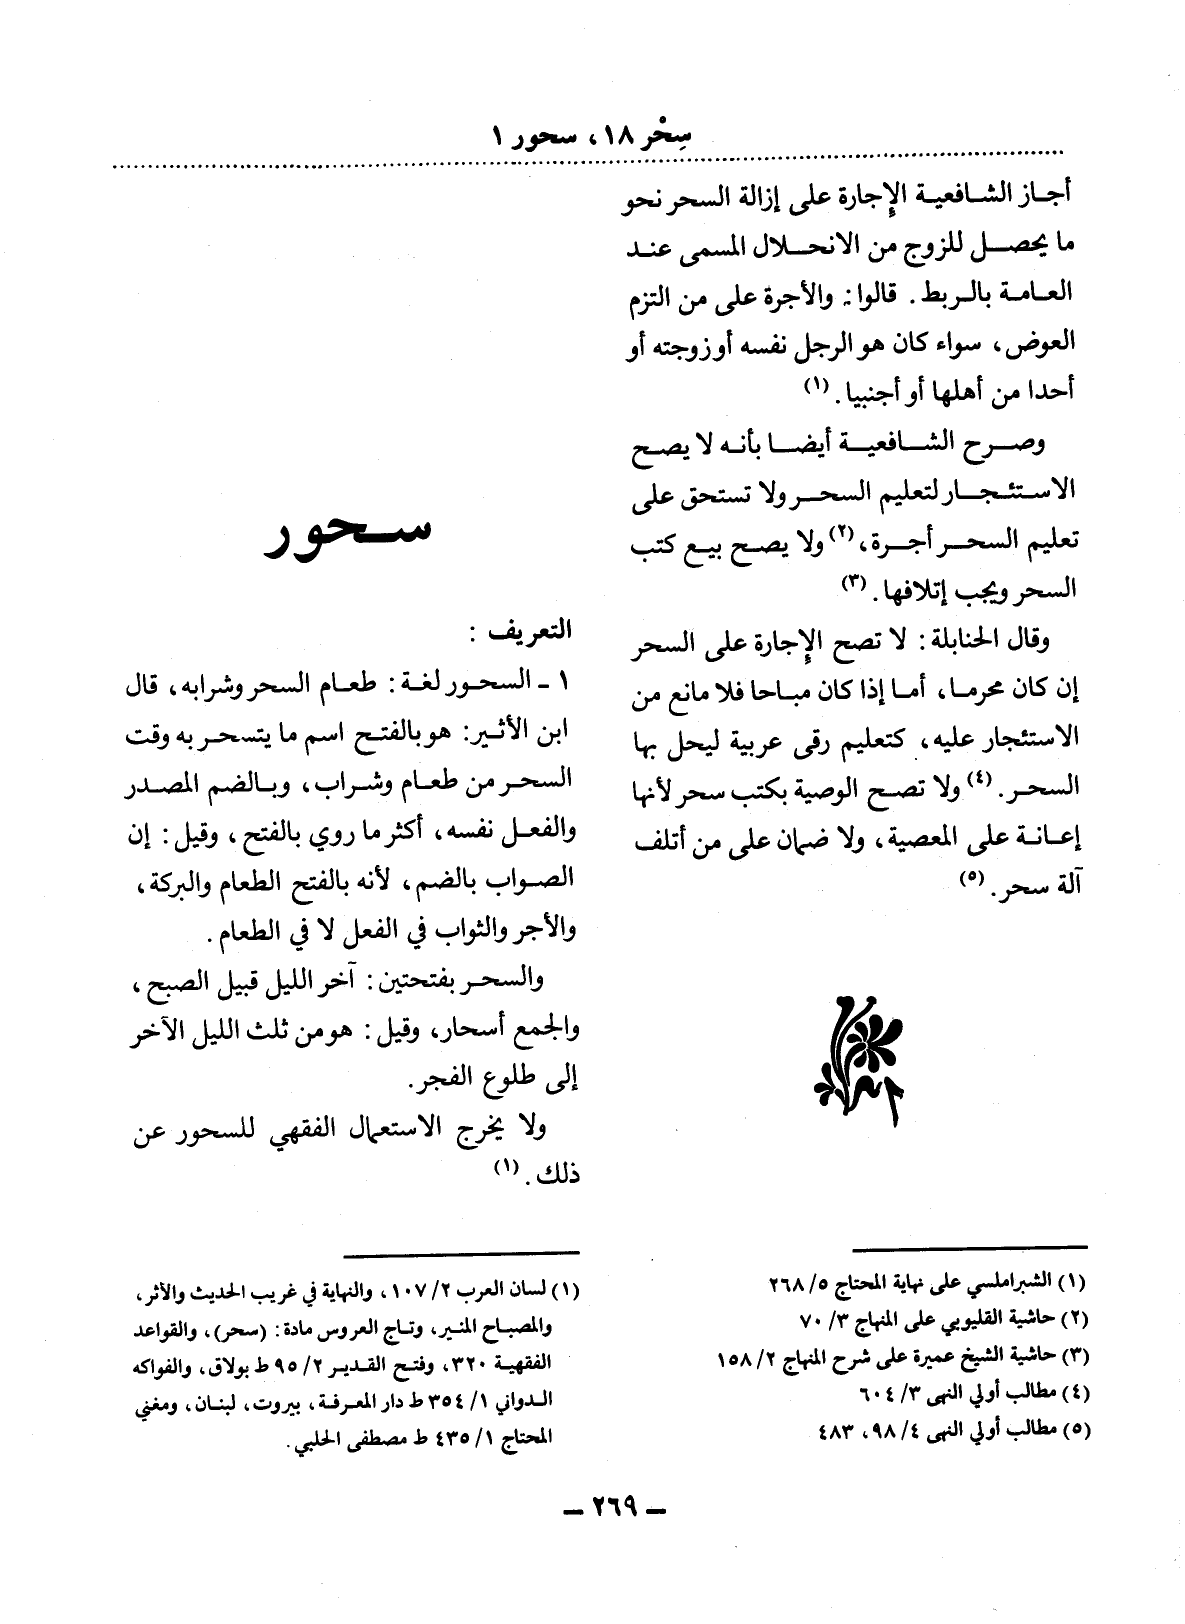 سِحْر ١٨، سحور ١
أجاز الشافعية الإجارة على إزالة السحر نحو
ما يحصل للزوج من الانحلال المسمى عند
العامة بالربط. قالوا: والأجرة على من التزم
العوض، سواء كان هو الرجل نفسه أو زوجته أو
أحدا من أهلها أو أجنبيا. (١)
وصرح الشافعية أيضا بأنه لا يصح
الاستئجار لتعليم السحر ولا تستحق على
تعليم السحر أجرة، (٢) ولا يصح بيع كتب
السحر ويجب إتلافها. (٣)
وقال الحنابلة: لا تصح الإجارة على السحر
إن كان محرما، أما إذا كان مباحا فلا مانع من
الاستئجار عليه، كتعليم رقى عربية ليحل بها
السحر. (٤) ولا تصح الوصية بكتب سحر لأنها
إعانة على المعصية، ولا ضمان على من أتلف
آلة سحر. (٥)
(١) الشبراملسي على نهاية المحتاج ٥/ ٢٦٨
(٢) حاشية القليوبي على المنهاج ٣/ ٧٠
(٣) حاشية الشيخ عميرة على شرح المنهاج ٢/ ١٥٨
(٤) مطالب أولي النهى ٣/ ٦٠٤
(٥) مطالب أولي النهى ٤/ ٩٨، ٤٨٣
سحور
التعريف :
١ - السحور لغة: طعام السحر وشرابه، قال
ابن الأثير: هو بالفتح اسم ما يتسحر به وقت
السحر من طعام وشراب، وبالضم المصدر
والفعل نفسه، أكثر ما روي بالفتح، وقيل: إن
الصواب بالضم، لأنه بالفتح الطعام والبركة،
والأجر والثواب في الفعل لا في الطعام.
والسحر بفتحتين: آخر الليل قبيل الصبح،
والجمع أسحار، وقيل: هو من ثلث الليل الآخر
إلى طلوع الفجر.
ولا يخرج الاستعمال الفقهي للسحور عن
ذلك. (١)
(١) لسان العرب ٢/ ١٠٧، والنهاية في غريب الحديث والأثر،
والمصباح المنير، وتاج العروس مادة: (سحر)، والقواعد
الفقهية ٣٢٠، وفتح القدير ٢/ ٩٥ ط بولاق، والفواكه
الدواني ١/ ٣٥٤ ط دار المعرفة، بيروت، لبنان، ومغني
المحتاج ١/ ٤٣٥ ط مصطفى الحلبي.
– ٢٦٩ –